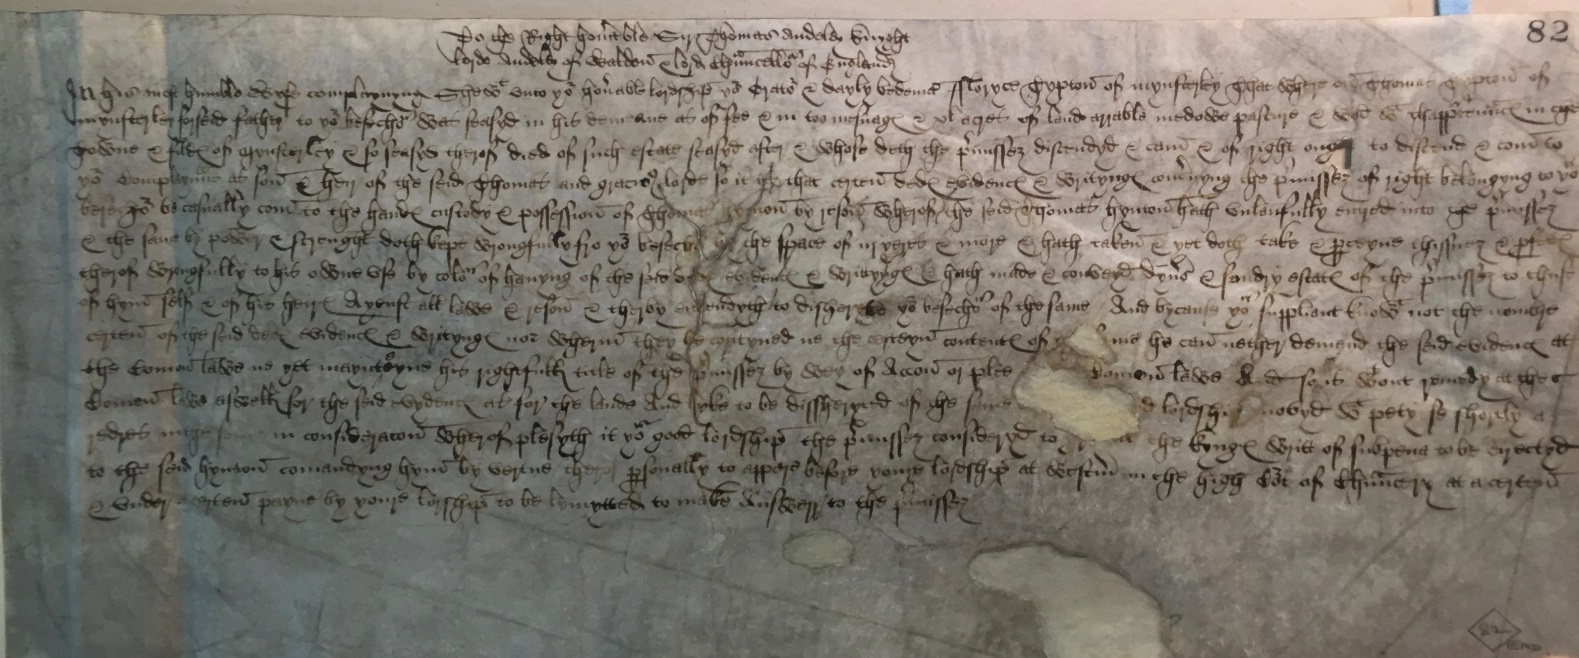 82
To the Right hon'able Sir Thomas Audeley knyght
lorde Audeley of Waldon & lord Chauncello' of Englande
In his most humble wyse complaynyng Shewith unto yo' hon'able lordship yo' Orato' & dayly bedeman of mynsterley That where one Thomas of
mynsterley forseid father to yo' besecho' was seasyd in his demeane as of fee & in too mesuages & xl acres of lond arrable medowe pasture & wod w' thapp'tenances in the
towne & fildes of mynsterley & so seasyd therof died of such estate seasyd after & whose deth the p'missez discendyd & cam & of right ought to discend & com to
yo' Complaynunt as son & heir of the seid Thomas and gracio's lorde so it is that certen dedes evidences & writynges concernyng the p'missez of right belongyng to yo'
be casually com to the handes custody & possession of Thomas hynton by reson wherof the seid Thomas hynton hath unlaufully entred into the p'missez
& the same by power & strenght doth kepe wrongfully fro yo' besecho' by the space of iij yeres & more & hath taken & yet doth take & p'ceyve thissuez & p'fites
therof wrongfully to his owne use by colo' of havyng of the seid dedes evidences & writynges & hath made & conveyd dyv's & sondry estates of the p'missez to thuse
of hym self & of his heires Ayenst all lawe & reson & therby entendyth to disherite yo' besecho' of the same And bycause yo' suppliant knowith not the nombre
certen of the seid dedes evidences & writynges nor wherin they be conteyned ne the certeyn contentes of me he can nether demand the seid evidences at
the Comon lawe ne yet mayntoyne his rightfull title of the p'missez by wey of Accon or plee Comen lawe And so is w'out remedy at the
Comen lawe aswell for the seid evydences as for the lande And lyke to be dissheryted of the same lordship movyd w' pety se shortly a
redres in the same in consideracon wherof plesyth it yo' good lordship the p'missez consideryd to the kynges writt of subpena to be directyd
to the seid hynton comandyng hym by vertue therof p'sonally to appere before youre lordship at westm' in the high Co't of Chauncery at a certen
& under a certen payne by youre lorsship to be lymytted to make Answer to the p'missez
82